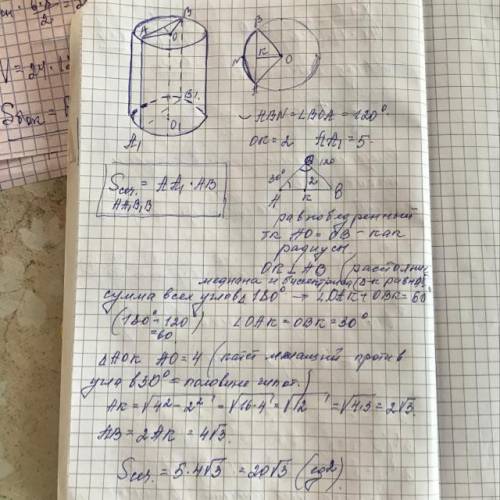 A B O
B1
A1 O1
B K O A
◡ ABN = ∠BOA = 120°
OK = 2 AA₁ = 5
Sсеч. = AA₁ · AB
AA₁B₁B
30° 120
2
A K B
равнобедренный
тк AO = OB – как
радиусы
OK ⊥ AB (расстояние
медиана и биссектриса
сумма всех углов Δ 180° → ∠OAK + OBK = 60°
(180° - 120 = 60) ∠OAK = OBK = 30°
ΔAOK AO = 4 (катет лежащий против
угла в 30° = половине гипот.)
AK = √4² - 2² = √16-4 = √12 = √4·3 = 2√3
AB = 2AK = 4√3.
Sсеч. = 5·4√3 = 20√3 (ед²)